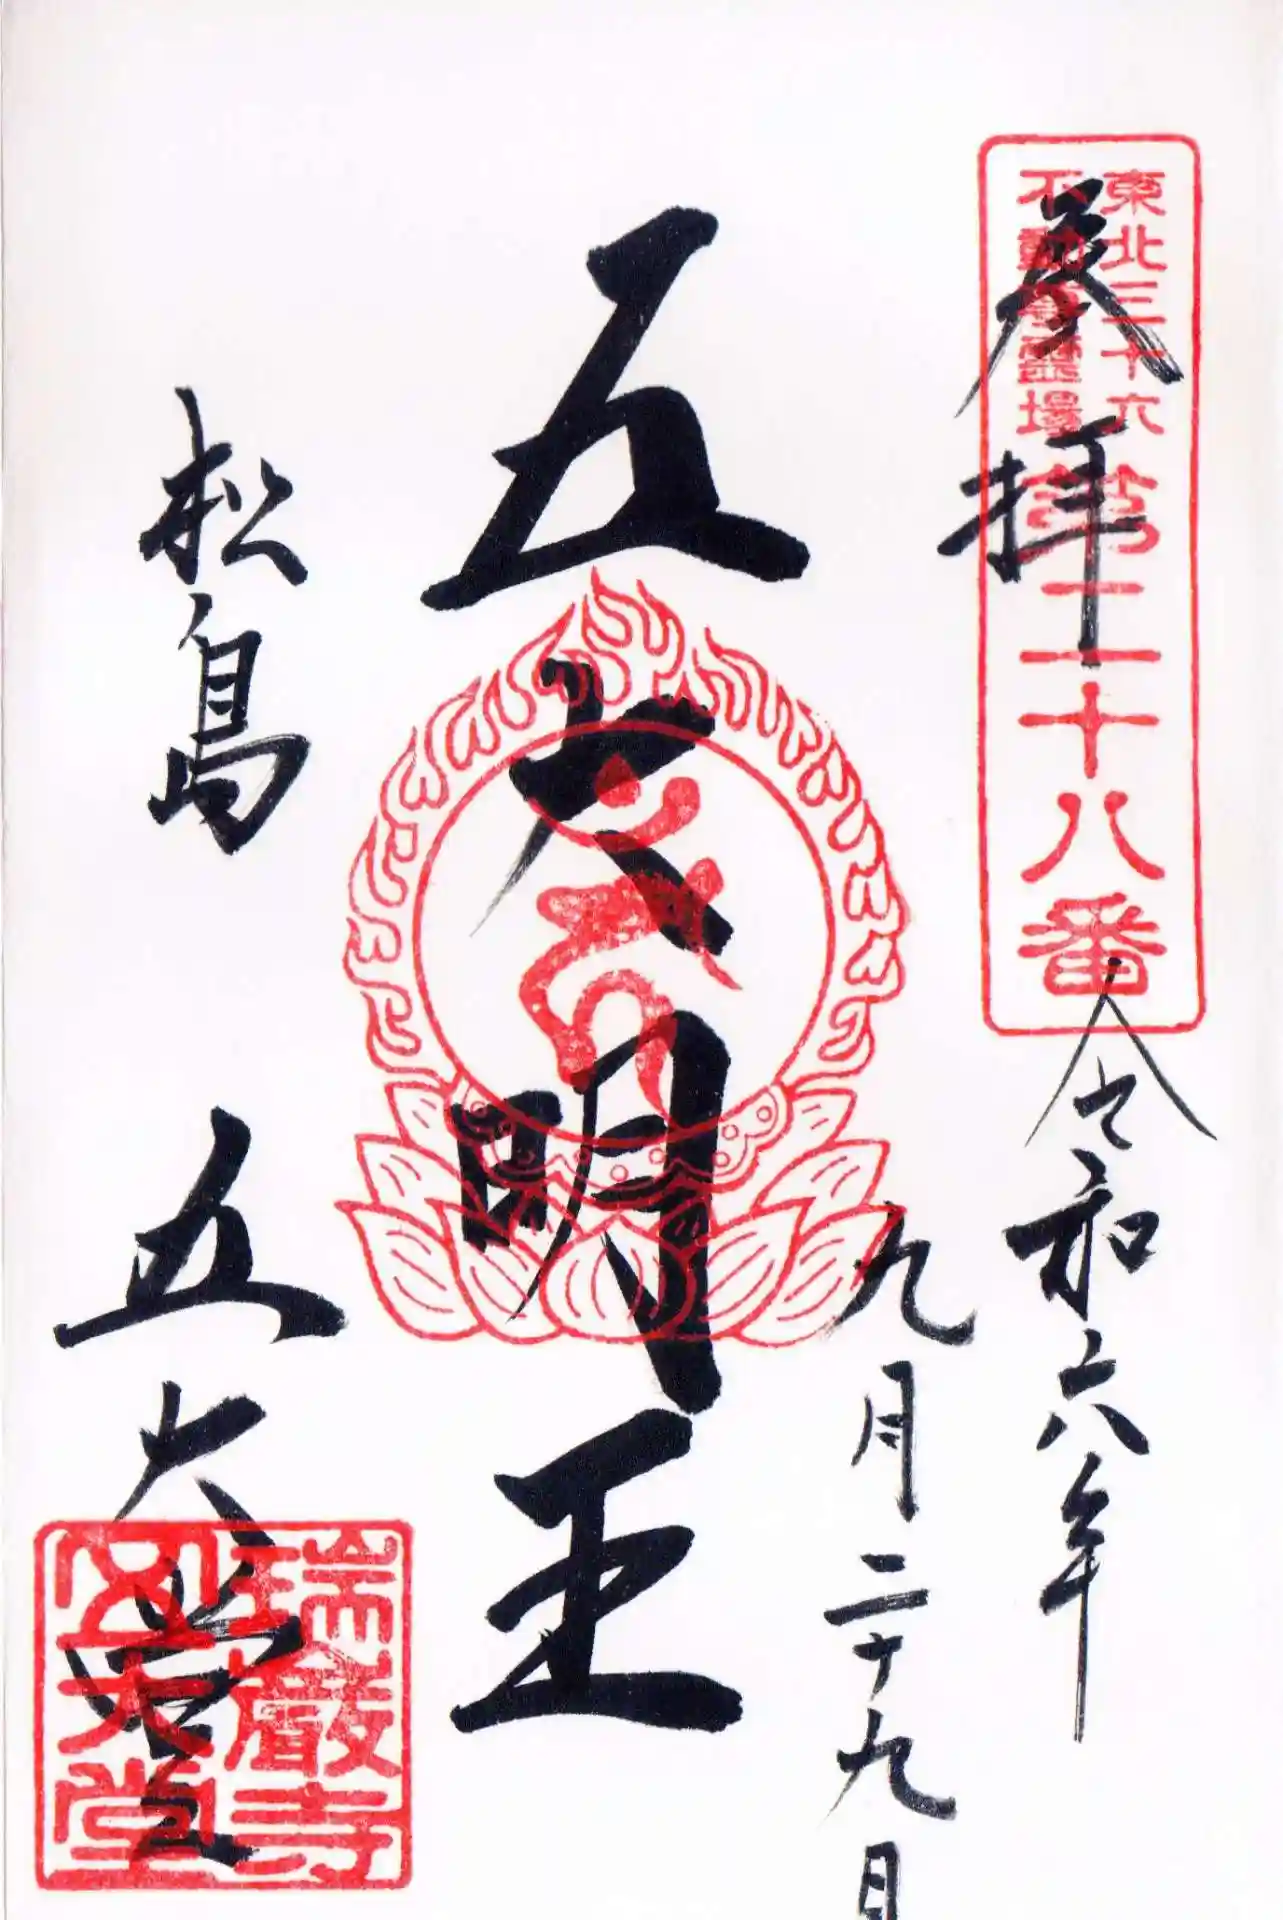 奉拝
東北三十六
不動尊霊場
第二十八番
令和六年
九月二十九日
五大明王
松島
五大堂
瑞巌寺
五大堂